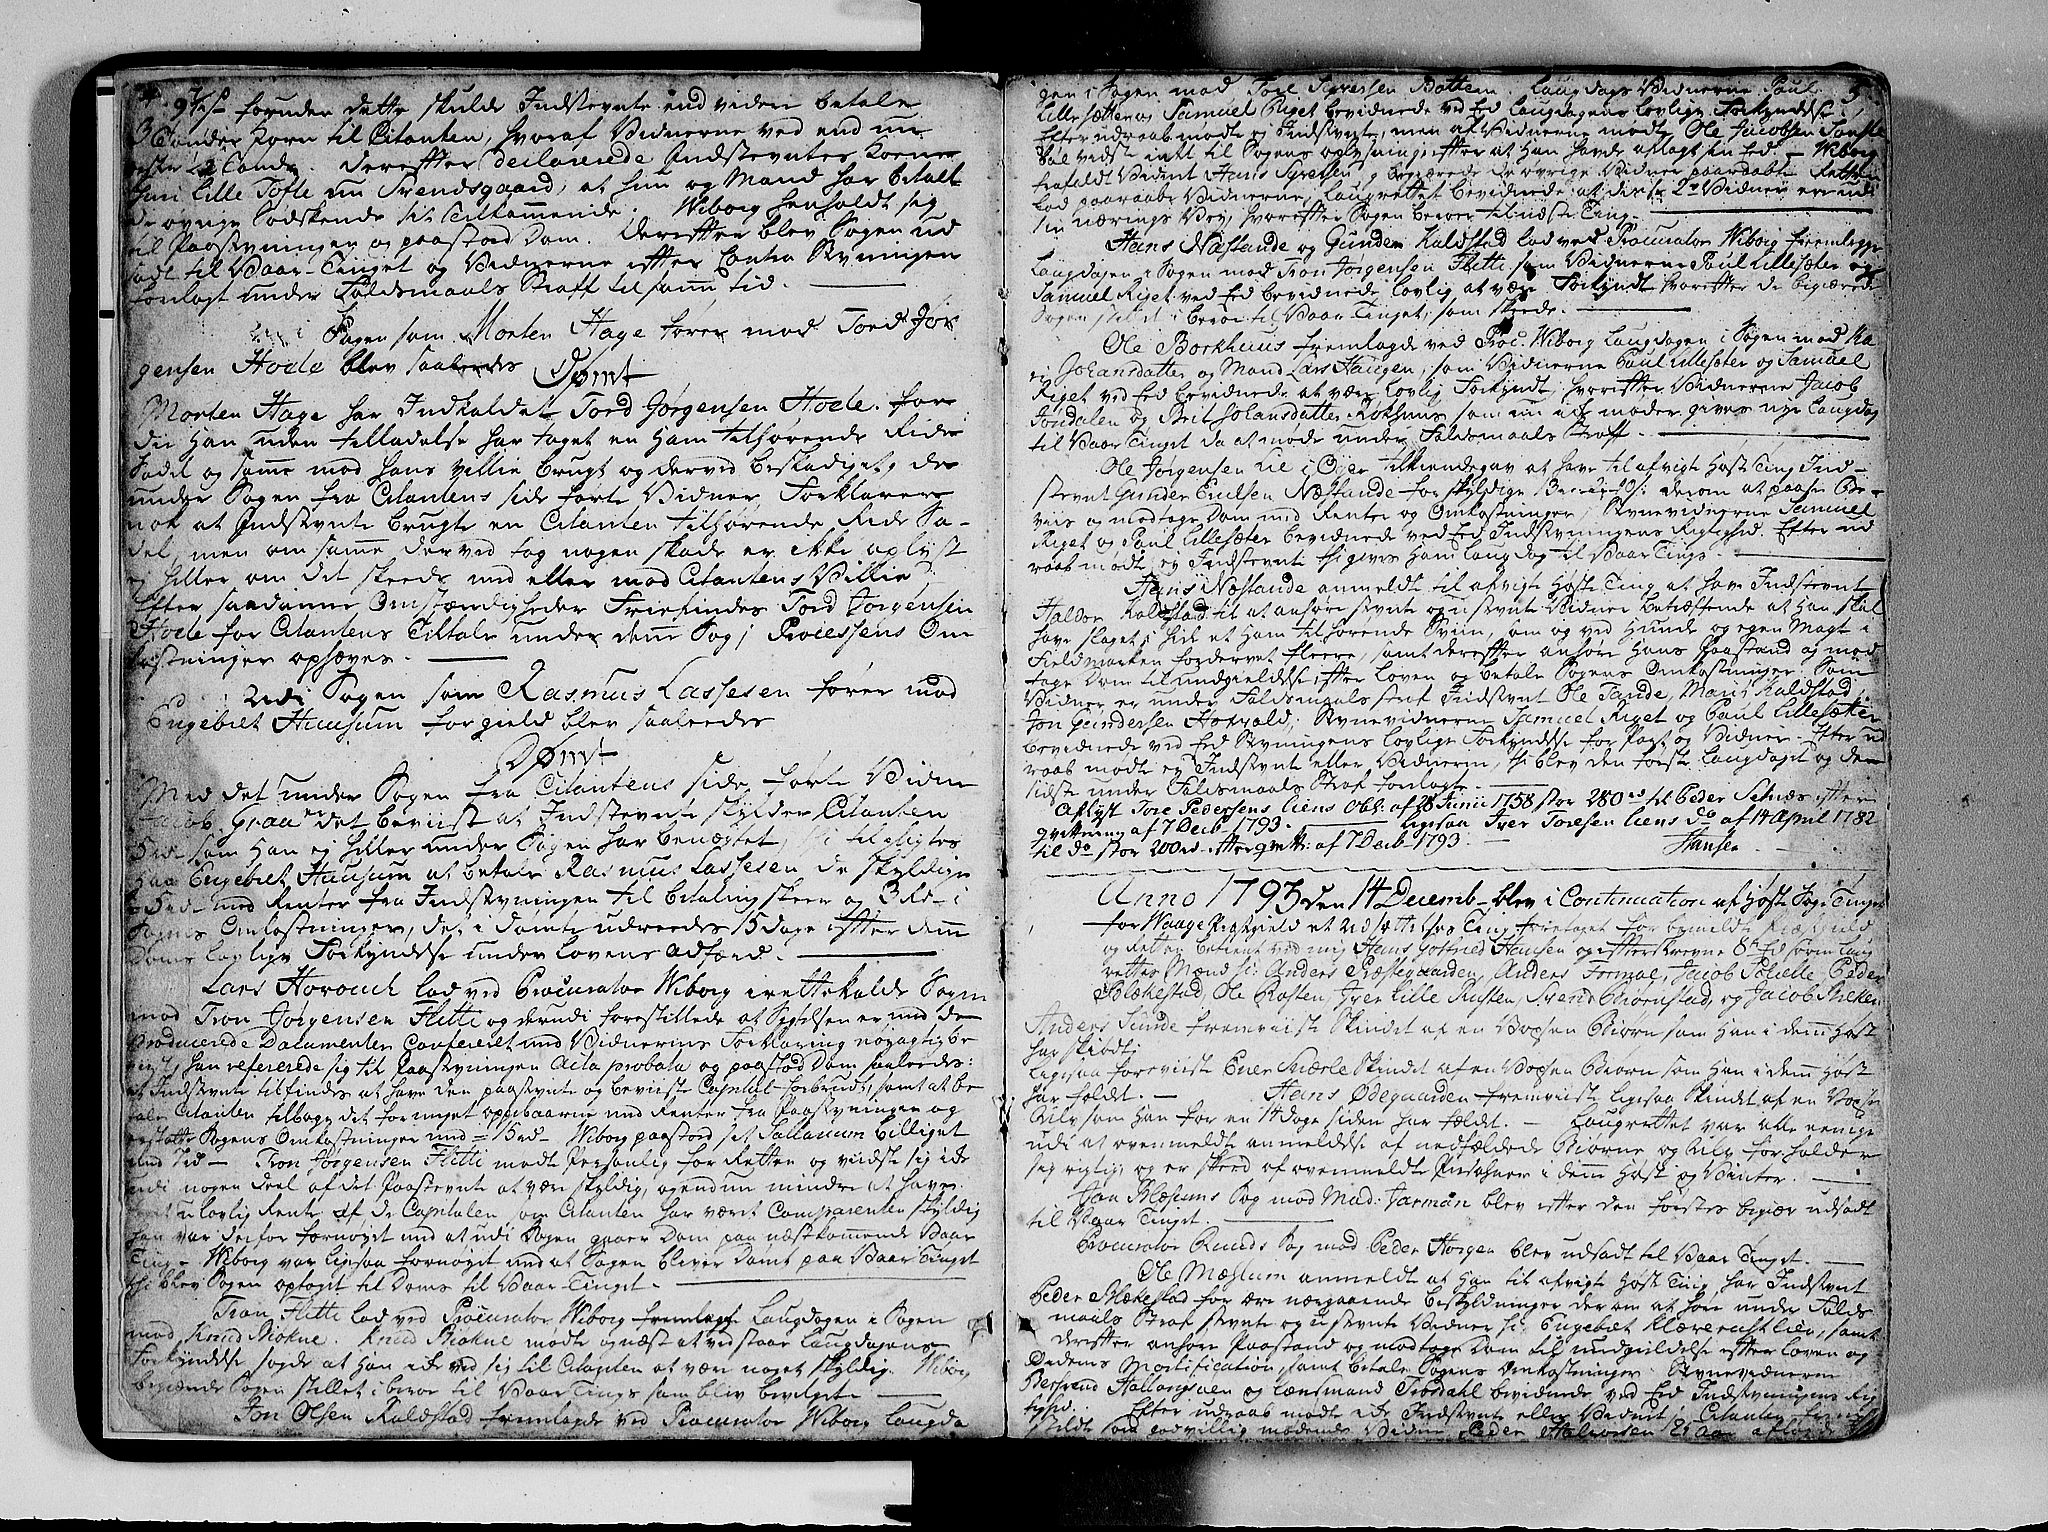 foruden dette skulde Indstevnte end videre betale
3 Tønder Korn til Citanten, hvoraf Vidnerne ved end nu
Derefter declarerede Indstevntes Koene
Guri Lille Tofte nu Svendsgaard, at hun og Mand har betalt
de øvrige Sødskende sit Tilkommende. Wiborg henholdt sig
til Paastevningen og paastod Dom. Derefter blev Sagen ud
sadt til Vaar-Tinget og Vidnerne efter Contra Stevningen
forelagt under Faldsmaals Straff til samme tid.
i Sagen som Morten Hage fører mod Tord Jør
gensen Hode blev saaledes Dømt
Morten Hage har Indkaldet Tord Jørgensen Hode for
dii han uden tilladelse har taget en ham tilhørende Ride
Sadel og samme mod hans villie brugt og derved beskadiget, de
under Sagen fra Citantens side førte Vidner forklarer
nok at Indstevnte brugte en Citanten tilhørende Ride Sa-
del, men om samme derved tog nogen skade er ikke oplyst
ej heller om det skeede med eller mod Citantens Villie
Efter saadanne Omstændigheder Friefindes Tord Jørgensen
Hode for Citantens Tiltale under denne Sag; Processens Om
kostninger ophæves.
udi Sagen som Rasmus Lassesen fører mod
Engebret Huusum for gield blev saaledes
Dømt
Med det under Sagen fra Citantens side førte Vidne
Jacob Graae er det beviist at Indstevnte skylder Citanten
5 rd som han ej heller under Sagen har benægtet, thi tilpligtes
Engebret Huusum at betale Rasmus Lassesen de skyldige
5 rd med Renter fra Indstevningen til betaling skeer og 3 Rd i
Sagens Omkostninger, det i Dømte udreedes 15 dage efter denne
Doms lovlige Forkyndelse under Lovens Adfærd.
Lars Horouch lod ved Procurator Wiborg irettekalde Sagen
mod Tron Jørgensen Flitti og derudi forestillede at Sigelsen er med de
producerede Documenter Confereret med Vidnernes Forklaring nøyagtig be
viist, han refererede sig til Paastevningen Acta probata og paastod Dom saaleedes:
at Indstevnte tilfindes at have den paastevnte og beviiste Capital forbrudt, samt at be
tale Citanten tilbage det formeget oppebaarne med Renter fra Paastevningen og
erstatte Sagens Omkostninger med 15 rd Wiborg paastod sit Sallarium billiget
Tron Jørgensen Flitti mødte Personlig for Retten og viidste sig icke
udi nogen deel af det Paastevnte at være skyldig, og endnu mindre at have
ulovlig Rente af de Capitaler som Citanten har været Comparenten skyldig
han var derfor fornøyet med at udi Sagen gaaer Dom paa næstkommende Vaar
Ting. Wiborg var ligesaa fornøyet med at Sagen bliver Dømt paa Vaar Tinget
thi blev Sagen optaget til Doms til Vaar Tinget.
Tron Flitti lod ved Procurator Wiborg fremlægge Laugdagen i Sagen
mod Knud Biokne. Knud Biokne mødte og næst at vedstaae Laugdagens
Forkyndelse sagde at han icke ved sig til Citanten at være noget skyldig. Wiborg
begærede Sagen stillet i beroe til Vaar Tinget, som blev bevilget.
Jon Olsen Kaldstad fremlagde ved Procurator Wiborg Laugda
5
gen i Sagen mod Tore Syversen Bottem. Laugdags Vidnerne Paul
Lillesætter og Samuel Riget bevidnede ved Eed Laugdagens lovlige Forkyndelse.
Efter udraab mødte ej Indstevnte, men af Vidnerne mødte Ole Jacobsen
vidste intet til Sagens oplysning, efter at han havde aflagt sin Eed. Wiborg
frafaldt Vidnet Hans Syversen og begiærede de øvrige Vidner paaraabte. Retten
lod paaraabe Vidnerne, Laugrettet bevidnede at disse 2de Vidner ere udi
sin Nærings Vey, hvorefter Sagen beroer til næste Ting.
Hans Næstande og Gunder Kaldstad lod ved Procurator Wiborg fremlegge
Laugdagen i Sagen mod Tron Jørgensen Flitti som Vidnerne Paul Lillesæter og
Samuel Riget ved Eed bevidnede lovlig at være Forkyndt hvorefter de begiærede
Sagen stillet i beroe til Vaar Tinget, som skeede.
Ole Borkhuus fremlagde ved Proc: Wiborg Laugdagen i Sagen mod Ka
ri Johansdatter og Mand Lars Haugen, som Vidnerne Paul Lillesæter og Samuel
Riget ved Eed bevidnede at være lovlig Forkyndt, hvorefter Vidnerne Jacob
Jøndalen og Brit Johansdatter som nu icke møder gives nye Laugdag
til Vaar Tinget da at møde under Faldsmaals Straff.
Ole Jørgensen Lie i Oyer tilkiendegav at have til afvigte Høst Ting Ind-
stevnt Gunder Eriksen Næstande for skyldige derom at paasee Be-
viis og modtage Dom med Renter og Omkostninger, Stevnevidnerne Samuel
Riget og Paul Lillesæter bevidnede ved Eed Indstevningens Rigtighed. Efter ud
raab mødte ej Indstevnte thi gives ham Laugdag til Vaar Tinget.
Hans Næstande anmeldt til afvigte Høste Ting at have Indstevnt
Haldor Kaldstad til at anhøre stevnte og ustevnte Vidner betræffende at han skal
have slaget i hiel et ham tilhørende Sviin, som og ved Hunde og egen Magt i
Fieldmarken fordervet fleere, samt derefter anhøre Hans Paastand og mod
tage Dom til undgieldelse efter Loven og betale Sagens Omkostninger. Som
Vidner er under Faldsmaals straf Indstevnt Ole Tande, Marit Kaldstad,
Jon Gundersen Stevnevidnerne Samuel Riget og Paul Lillesætter
bevidnede ved Eed Stevningens lovlige Forkyndelse for Part og Vidner. Efter ud
raab mødte ej Indstevnte eller Vidnerne, thi blev den første Laugdaget og de
sidste under Faldsmaals Straf forelagte.
Aflyst Tore Pedersens Obl: af 28 Junii 1758 stor 280 rd til Peder Selnæs efter
qvittering af 7 Decb 1793. Ligesaa Iver Toresen do af 14 April 1782
til do stor 200 rd efter qvitt: af 7 Decb 1793.
Hansen
Anno 1793 den 14 Decemb blev i Continuation af Høste Sage Tinget
for Waage Præstegield et ting foretaget for bemeldt Præstegield
og Retten betient ved mig Hans Gotfried Hansen og efterskrevne 8te Edsvorne Laug
rettes Mænd s: Anders Præstegaarden, Anders Formoe, Jacob Peder
Blekestad, Ole Rosten, Iver Lille Rusten, Svend Biørnstad, og Jacob
Anders Sunde fremviiste Skindet af en Voxsen Biørn som han i denne Høst
har skiødt;
Ligesaa foreviiste Ener Skindet af en Voxsen Biørn som han i denne Høst
har fældt. Hans Ødegaarden fremviiste ligesaa Skindet af en Voxsen
Ulv som han for en 14 dage siden har fældt. Laugrettet var alle eenige
udi at ovenmeldte anmeldelse af nedfældede Biørne og Ulv forholder
sig rigtig og er skeed af ovenmeldte Persohner i denne Høst og Vinter.
Blæsums Sag mod Mad: Jarman blev efter den førstes begiær udsadt
til Vaar Tinget.
Procurator Sag mod Peder Horgen blev udsadt til Vaar Tinget.
Ole Mæhlum anmeldt at han til afvigte Høst Ting har Indstevnt
Peder Blekestad for ære nærgaaende beskyldninger derom at høre under Falds
maals Straf stevnte og ustevnte Vidner s: Engebret samt
derefter anhøre Paastand og modtage Dom til undgieldelse efter Loven og
Ordenes Mortification, samt betale Sagens Omkostninger. Stevnevidnerne
og Lænsmand bevidnede ved Eed Indstevningens Rig
tighed. Efter udraab mødte icke Indstevnte eller Vidnet; Citanten
som godvillig mødende Vidne Peder Halvorsen